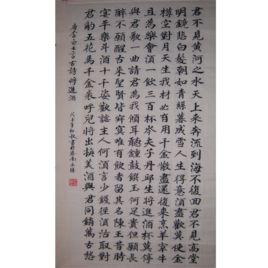 君不見黄河之水天上來奔流到海不復回君不見高堂
明鏡悲白髮朝如青絲暮成雪人生得意須盡歡莫使金
樽空對月天生我材必有用千金散盡還復來烹羊宰牛
且為樂會須一飲三百杯岑夫子丹丘生將進酒杯莫停
與君歌一曲請君為我傾耳聽鐘鼓饌玉何足貴但願長
醉不願醒古來聖賢皆寂寞惟有飲者留其名陳王昔時
宴平樂斗酒十千恣歡謔主人何為言少錢徑須沽取對
君酌五花馬千金裘呼兒將出換美酒與君同銷萬古愁
唐李白古詩將進酒
戊子年秋書